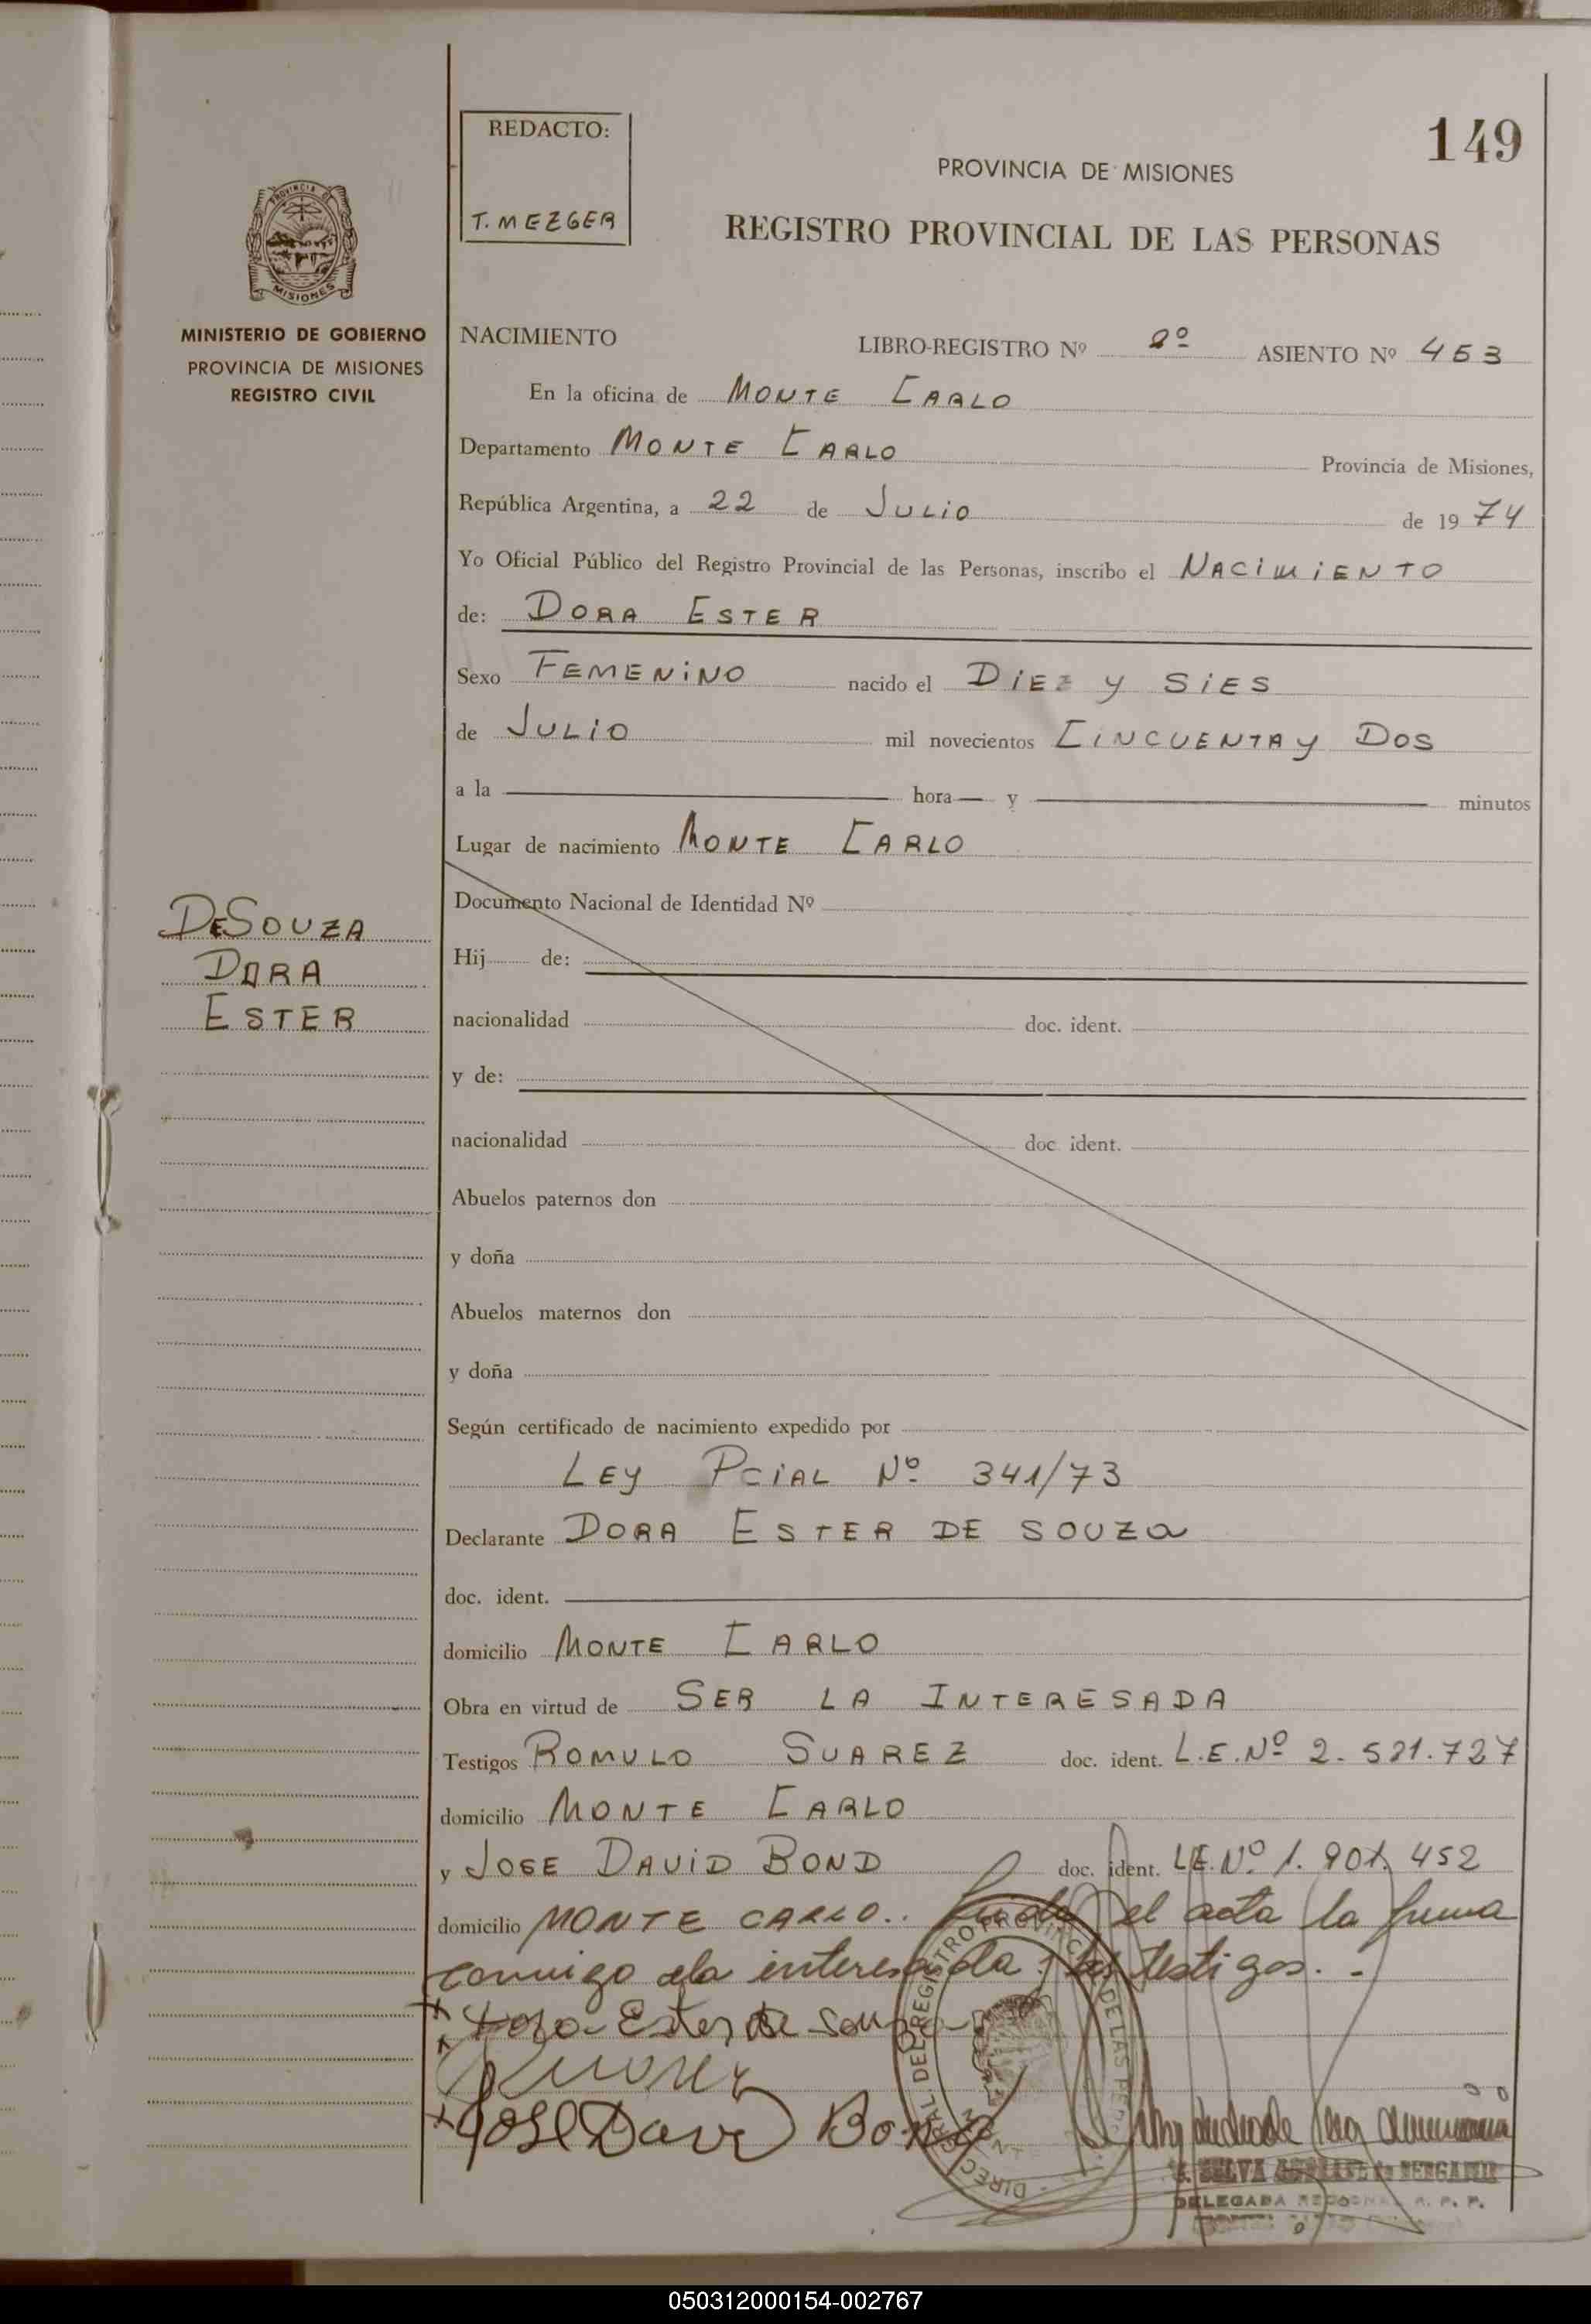 REDACTO:
T. MEZGER
149
PROVINCIA DE MISIONES
REGISTRO PROVINCIAL DE LAS PERSONAS
PROVINCIA DE
MISIONES
MINISTERIO DE GOBIERNO
PROVINCIA DE MISIONES
REGISTRO CIVIL
NACIMIENTO LIBRO-REGISTRO Nº 2º ASIENTO Nº 453
En la oficina de MONTE CARLO
Departamento MONTE CARLO Provincia de Misiones,
República Argentina, a 22 de JULIO de 19 74
Yo Oficial Público del Registro Provincial de las Personas, inscribo el NACIMIENTO
de: DORA ESTER
Sexo FEMENINO nacido el DIEZ Y SIES
de JULIO mil novecientos CINCUENTA y DOS
a la hora y minutos
Lugar de nacimiento MONTE CARLO
DE SOUZA
DORA
ESTER
Documento Nacional de Identidad Nº
Hij de:
nacionalidad doc. ident.
y de:
nacionalidad doc. ident.
Abuelos paternos don
y doña
Abuelos maternos don
y doña
Según certificado de nacimiento expedido por
LEY PCIAL Nº 341/73
Declarante DORA ESTER DE SOUZA
doc. ident.
domicilio MONTE CARLO
Obra en virtud de SER LA INTERESADA
Testigos ROMULO SUAREZ doc. ident. L.E. Nº 2.521.727
domicilio MONTE CARLO
y JOSE DAVID BOND doc. ident. L.E. Nº 1.901.452
domicilio MONTE CARLO.. el acta la firma
conmigo la interesada y los testigos. -
Dora Ester De Souza
Jose Davi Bond
DELEGADA
050312000154-002767